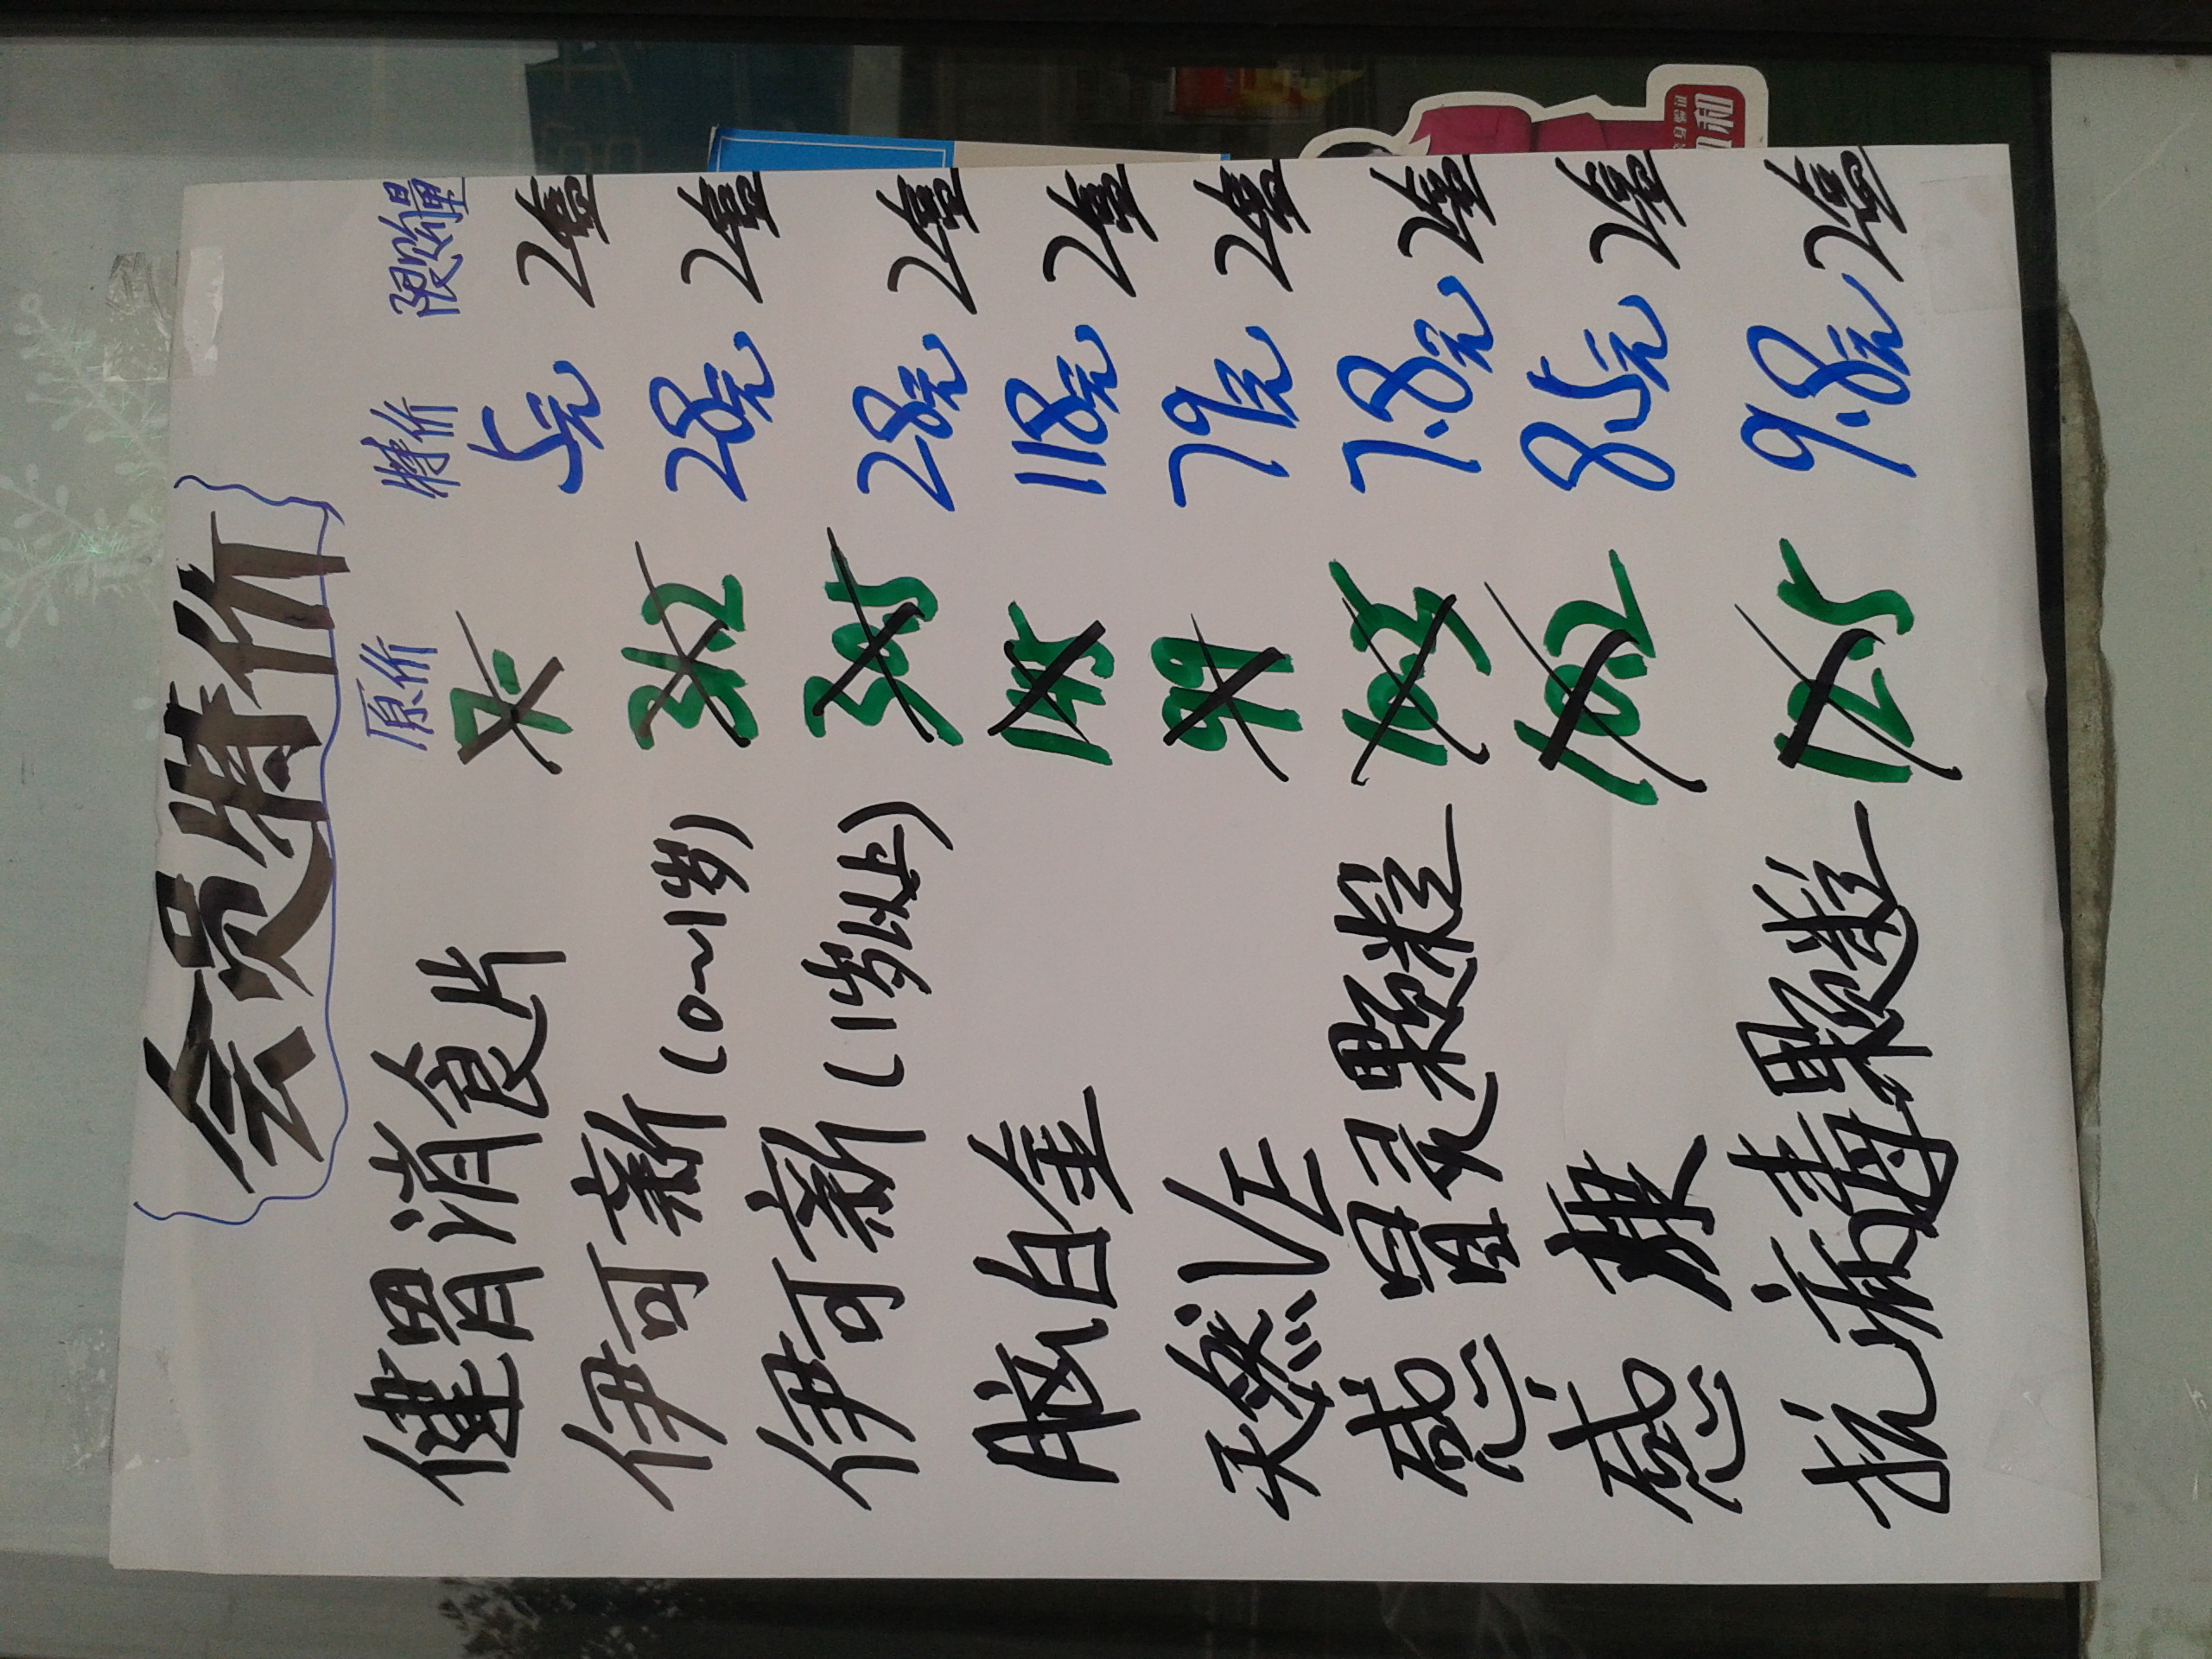 会员特价
原价 特价 限购量
健胃消食片 7.- 5元 2盒
伊可新(0~1岁) 31.2 28元 2盒
伊可新(1岁以上) 30.5 28元 2盒
脑白金 145 118元 2盒
天然VE 99 79元 2盒
感冒灵颗粒 10.5 7.8元 2盒
感康 10.2 8.5元 2盒
抗病毒颗粒 12.5 9.8元 2盒